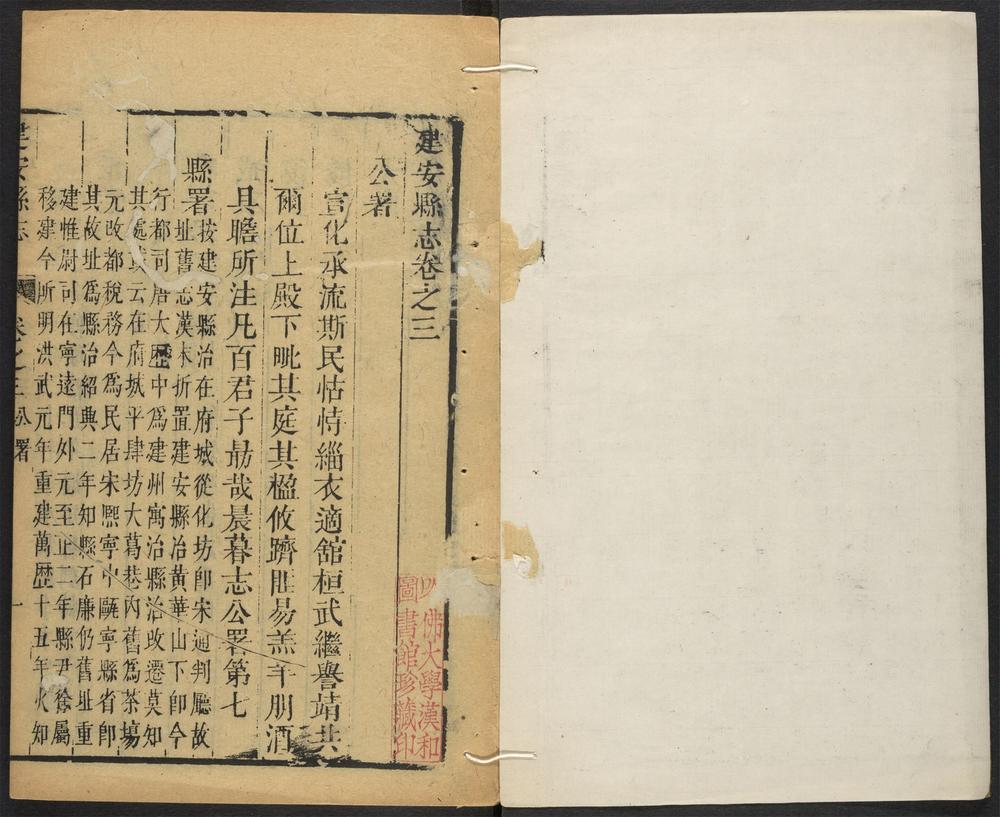 建安縣志卷之三
公署
宣化承流斯民怙恃緇衣適舘桓武繼譽靖共
爾位上殿下毗其庭其楹攸躋匪易羔羊朋酒
具瞻所注凡百君子勗哉晨暮志公署第七
縣署
按建安縣治在府城從化坊卽宋通判廳故
址舊志漢末折置建安縣治黃華山下卽今
行都司唐大歷中爲建州寓治縣治改遷莫知
其處或云在府城平肆坊大葛巷內舊爲茶塲
元改都稅務今爲民居宋熈寧中甌寧縣省卽
其故址爲縣治紹興二年知縣石廉仍舊址重
建惟尉司在寧遠門外元至正二年縣尹徐屬
移建今所明洪武元年重建萬歷十五年火知
建安縣志 卷之三 公署 一
佛大學漢和
圖書館珍藏印